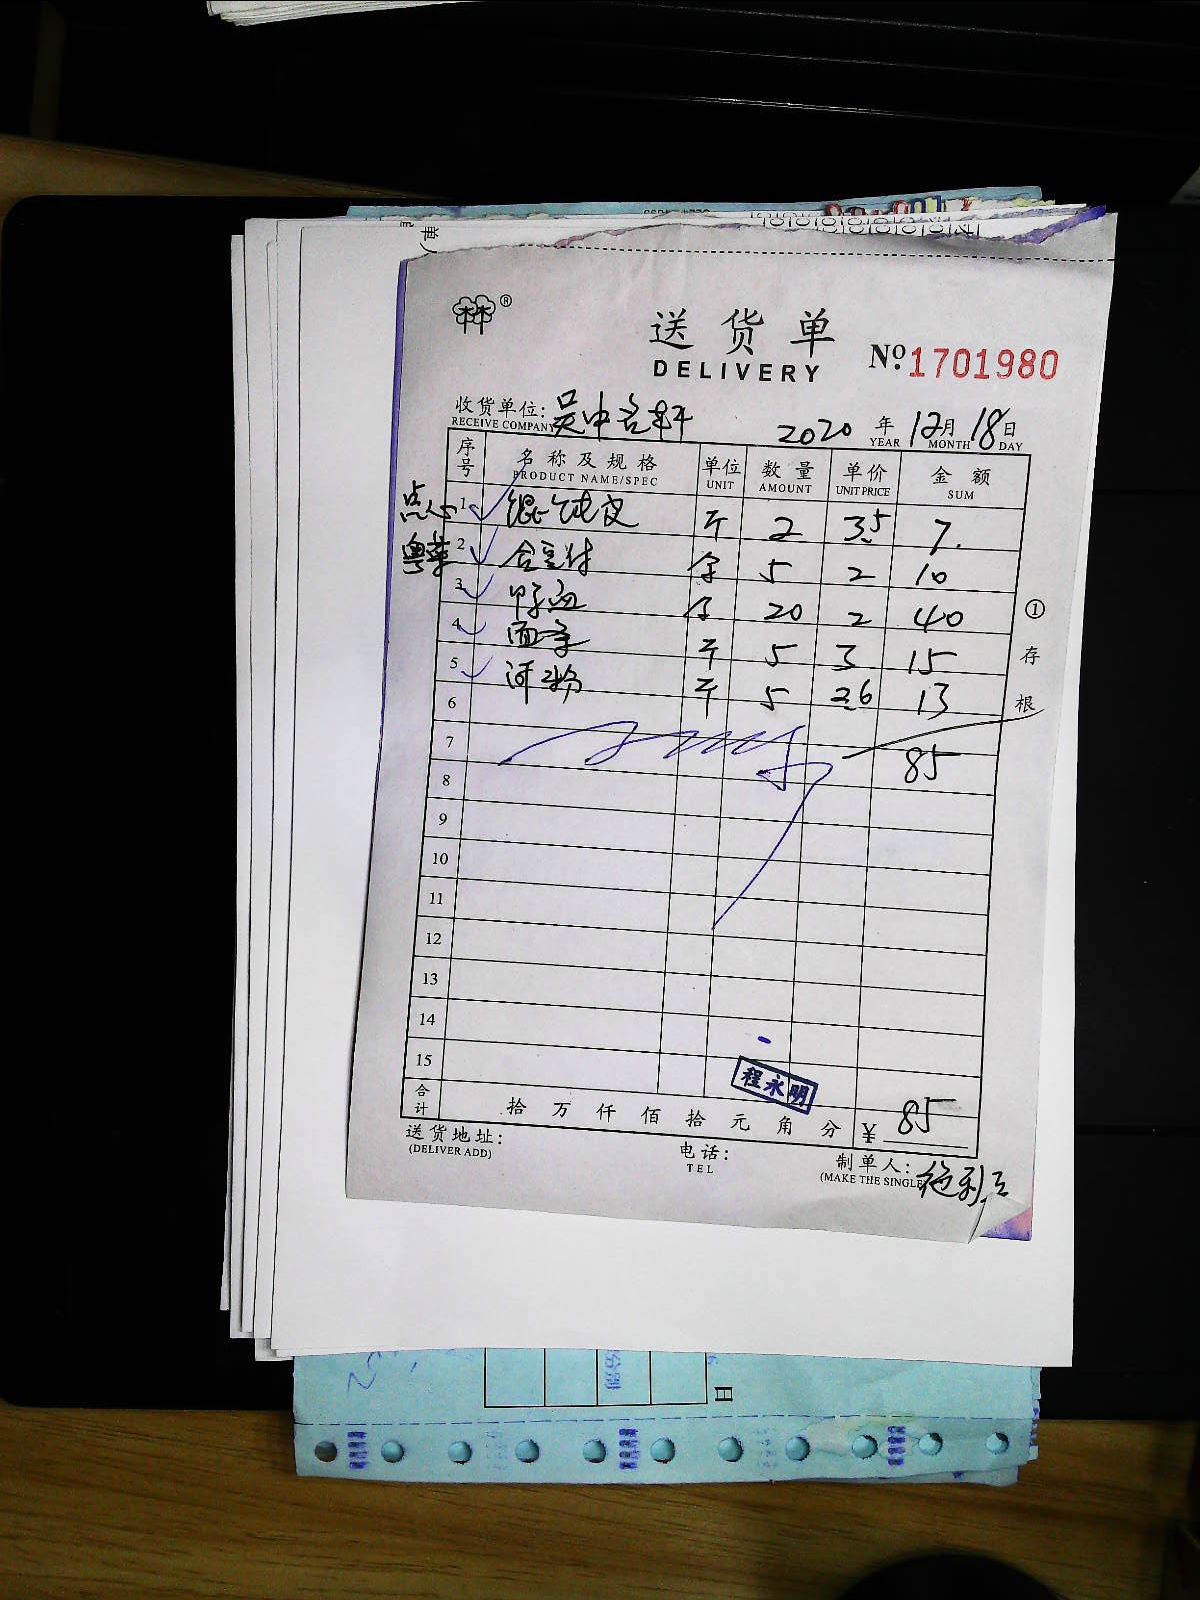 ®
送货单
DELIVERY
№.1701980
收货单位:吴中名轩 2020年12月18日
RECEIVE COMPANY YEAR MONTH DAY
序号 名称及规格 单位 数量 单价 金额
PRODUCT NAME/SPEC UNIT AMOUNT UNIT PRICE SUM
点心 1 馄饨皮 斤 2 3.5 7.
粤菜 2 5 2 10
3 鸭血 20 2 40
4 面筋 斤 5 3 15
5 河粉 斤 5 2.6 13
6
7 85
8
9
10
11
12
13
14
15
程永明
合计 拾万仟佰拾元角分 ¥ 85
送货地址:
(DELIVER ADD)
电话:
TEL
制单人:
(MAKE THE SINGLE
①存根